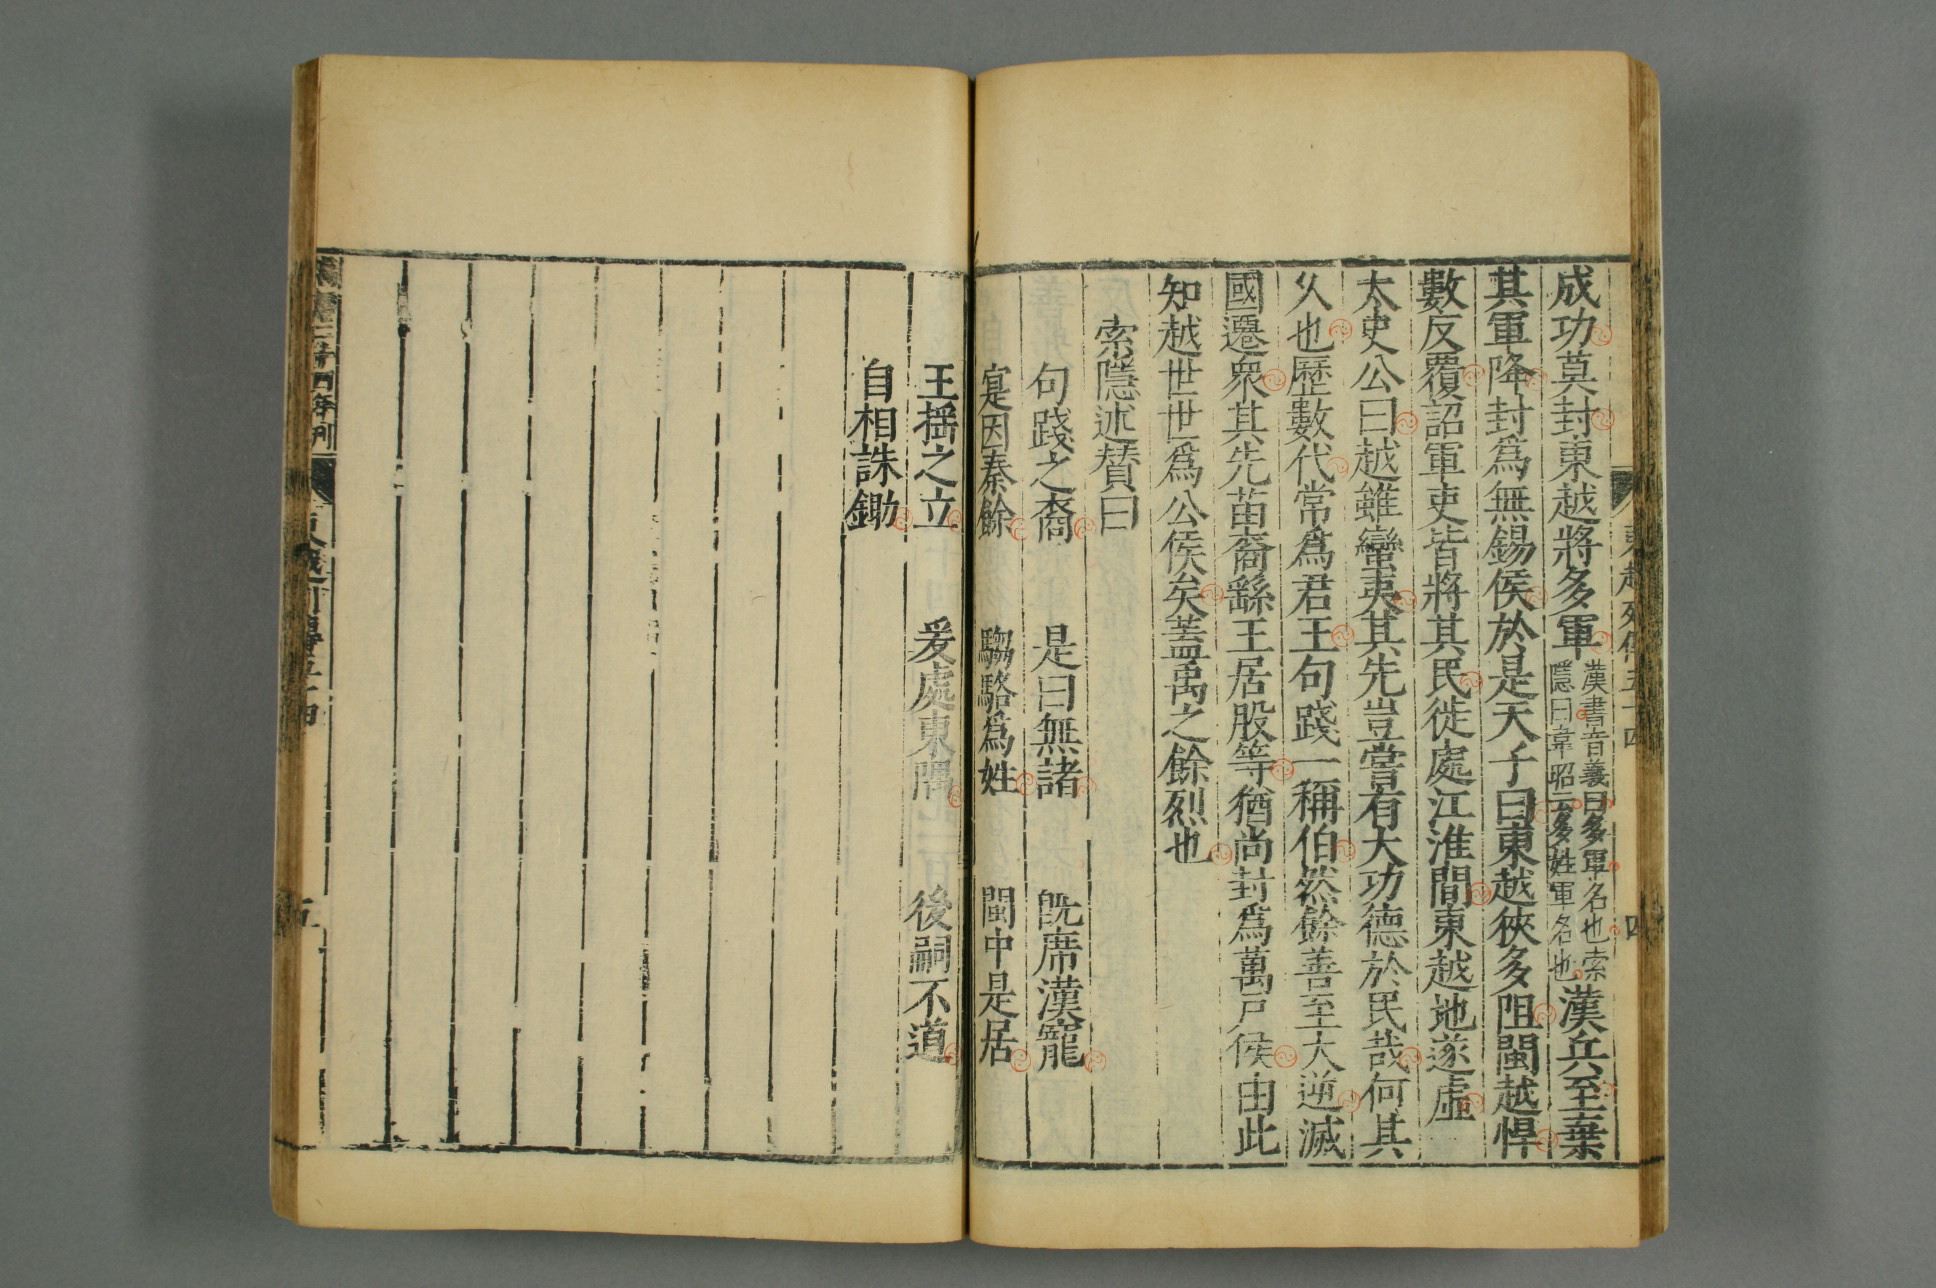 東越列傳五十四
四
成功莫封東越將多軍漢書音義曰多軍名也索隱曰韋昭云多姓軍名也漢兵至棄
其軍降封爲無錫侯於是天子曰東越狹多阻閩越悍
數反覆詔軍吏皆將其民徙處江淮間東越地遂虛
太史公曰越雖蠻夷其先豈嘗有大功德於民哉何其
乆也歷數代常爲君王句踐一稱伯然餘善至大逆滅
國遷衆其先苗裔繇王居股等猶尚封爲萬戶侯由此
知越世世爲公侯矣蓋禹之餘烈也
索隱述贊曰
句踐之裔 是曰無諸 旣席漢寵
寔因秦餘 騶駱爲姓 閩中是居
王搖之立 爰處東隅 後嗣不道
自相誅鋤
五